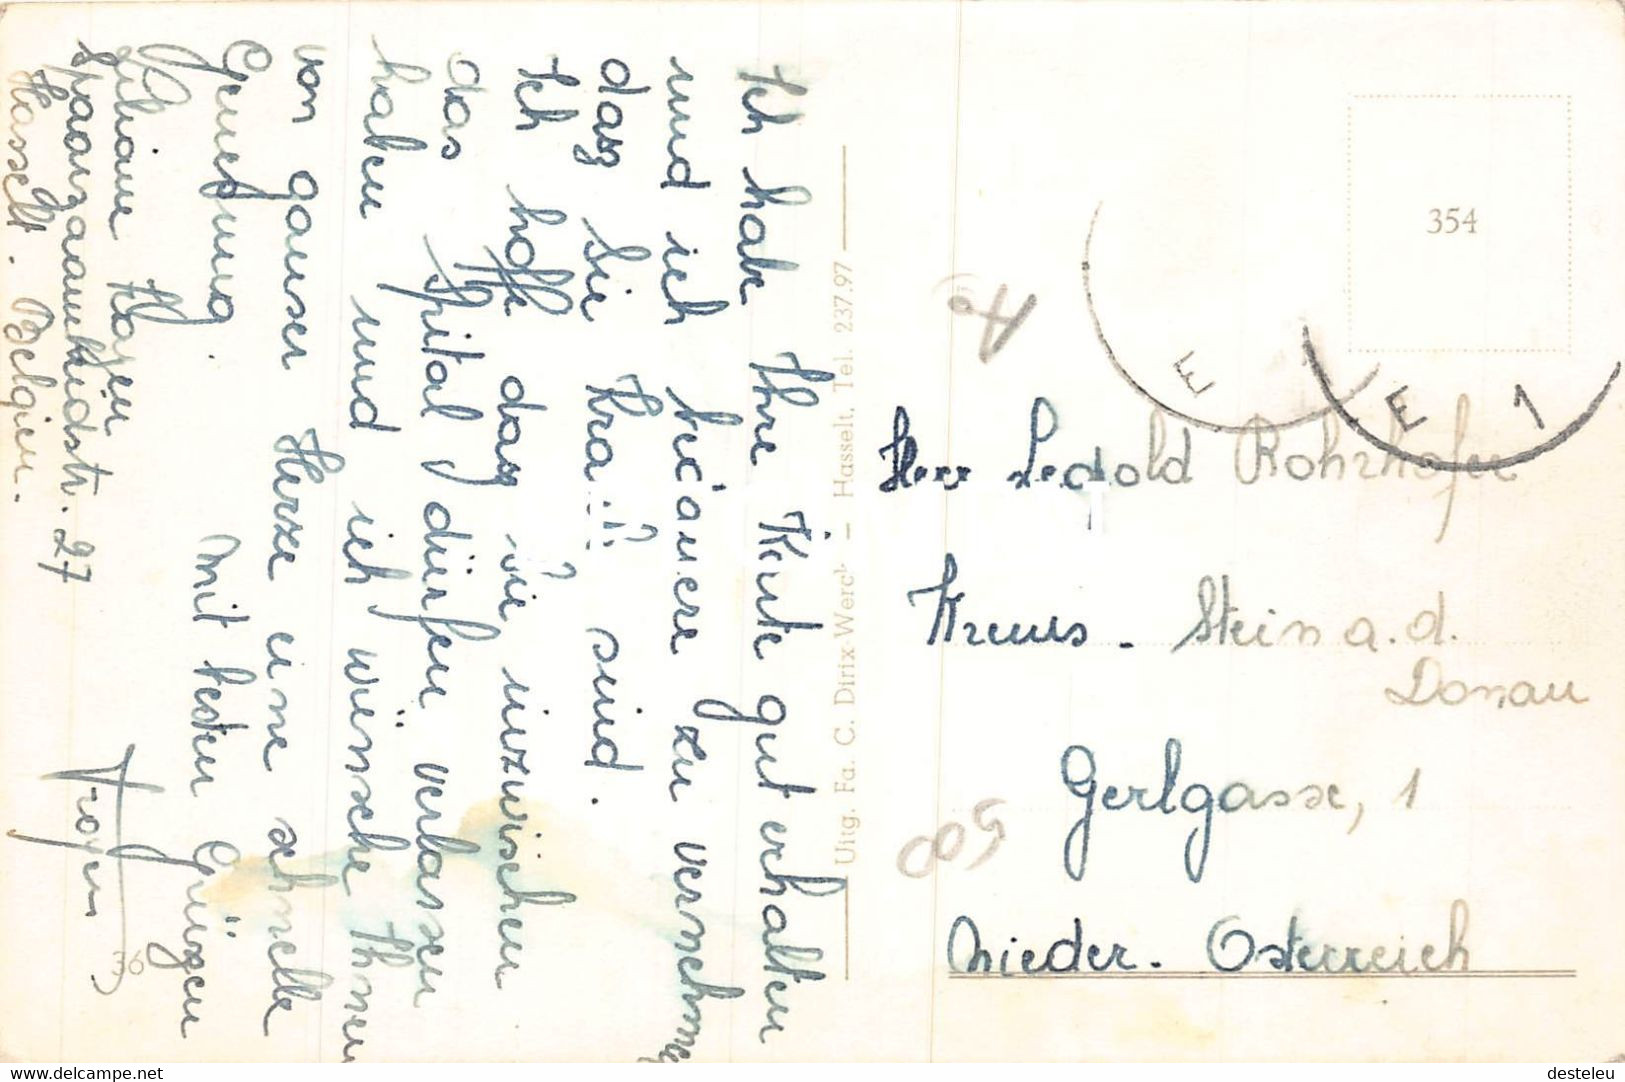 Ich habe Ihre Karte gut erhalten
und ich bedauere zu vernehmen
dasz Sie Kra sind.
Ich hoffe dasz Sie inzwischen
das Spital dürfen verlassen
haben und ich wünsche Ihnen
von ganser Herze eine schnelle
Genesung.
Mit besten Grüszen
Froyen
Spaanzaamheidstr. 27
Hasselt. Belgien.
36
Uitg. Fa. C. Dirix-Werck — Hasselt, Tel. 237.97
354
E
E 1
500
Herr Leopold Rohrhofer
Krems. Stein a.d.
Donau
Gerlgasse, 1
Nieder. Osterreich
www.delcampe.net
desteleu